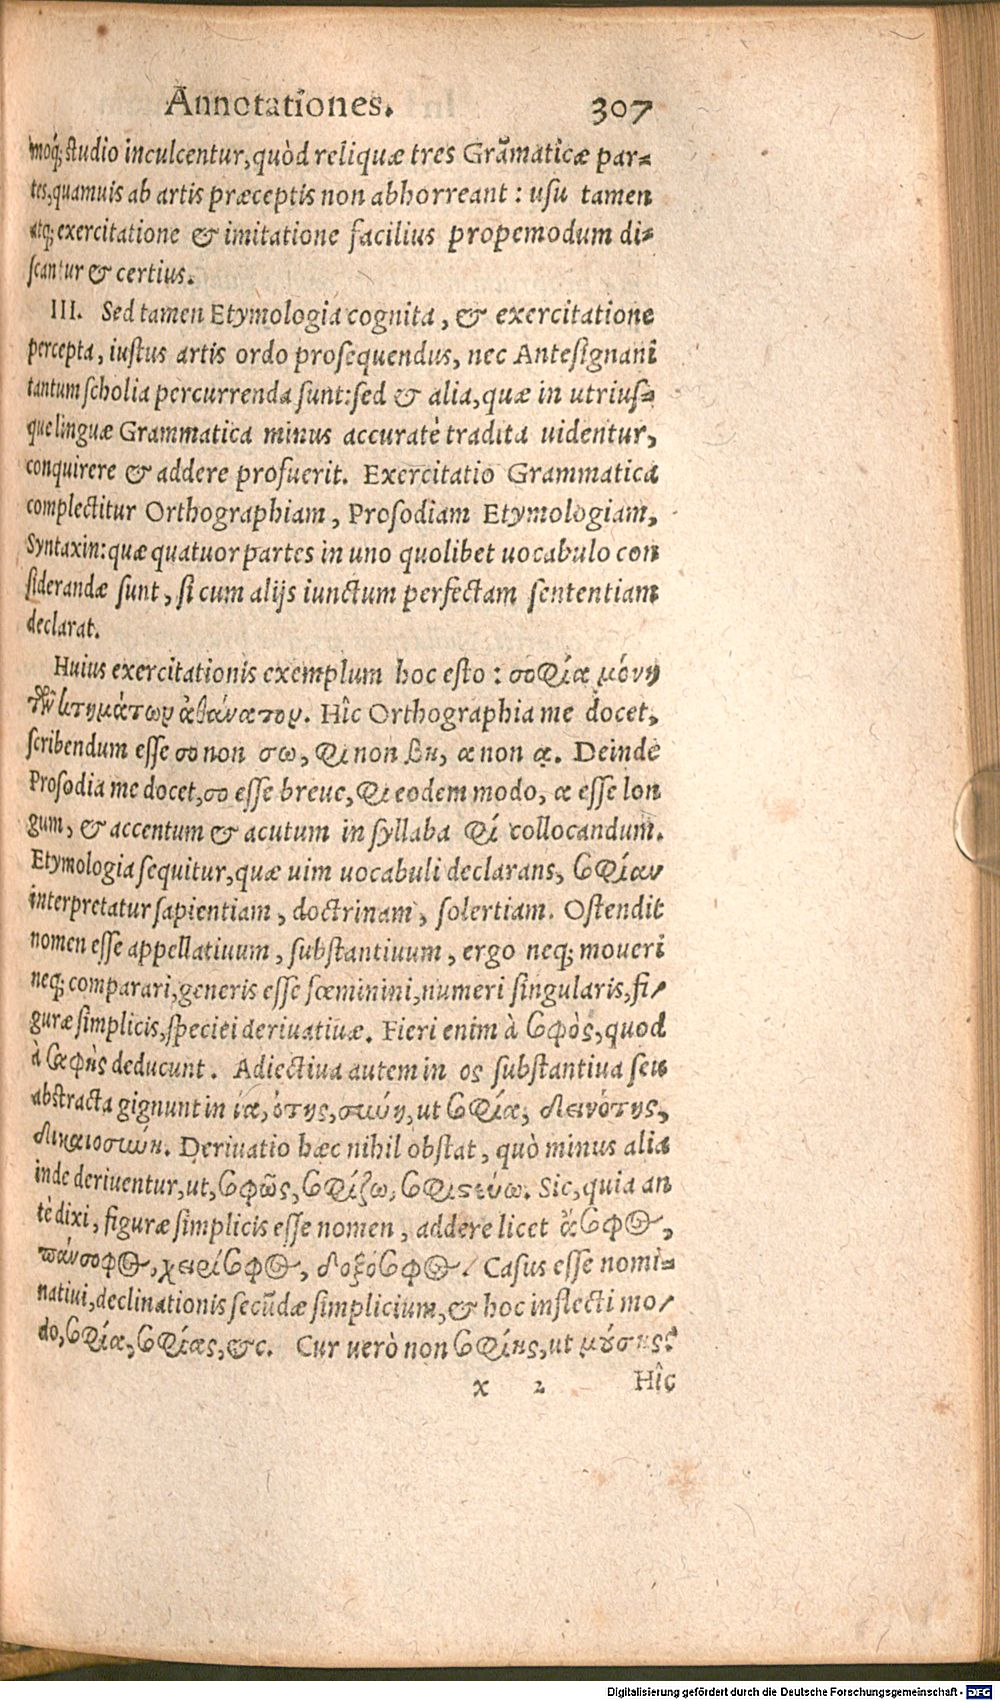 Annotationes. 307
moq́; studio inculcentur, quòd reliquæ tres Grãmaticæ par-
tes, quamuis ab artis præceptis non abhorreant: usu tamen
atq; exercitatione & imitatione facilius propemodum di-
scantur & certius.
III. Sed tamen Etymologia cognita, & exercitatione
percepta, iustus artis ordo prosequendus, nec Antesignani
tantum scholia percurrenda sunt: sed & alia, quæ in utrius-
que linguæ Grammatica minus accuratè tradita uidentur,
conquirere & addere profuerit. Exercitatio Grammatica
complectitur Orthographiam, Prosodiam Etymologiam,
Syntaxin: quæ quatuor partes in uno quolibet uocabulo con
siderandæ sunt, si cum alijs iunctum perfectam sententiam
declarat.
Huius exercitationis exemplum hoc esto: σοφία μόνη
τῶν κτημάτωρ ἀθάνατορ. Hîc Orthographia me docet,
scribendum esse σο non σω, φι non βη, α non ᾳ. Deinde
Prosodia me docet, σο esse breue, φι eodem modo, α esse lon
gum, & accentum & acutum in syllaba φί collocandum.
Etymologia sequitur, quæ uim uocabuli declarans, σοφίαν
interpretatur sapientiam, doctrinam, solertiam. Ostendit
nomen esse appellatiuum, substantiuum, ergo neq; moueri
neq; comparari, generis esse fœminini, numeri singularis, fi-
guræ simplicis, speciei deriuatiuæ. Fieri enim à σοφὸς, quod
à σαφὴς deducunt. Adiectiua autem in ος substantiua seu
abstracta gignunt in ία, ότης, σύνη, ut σοφία, δεινότης,
δικαιοσύνη. Deriuatio hæc nihil obstat, quò minus alia
inde deriuentur, ut, σοφῶς, σοφίζω, σοφιστεύω. Sic, quia an
tè dixi, figuræ simplicis esse nomen, addere licet ἄσοφος,
πάνσοφος, χειρίσοφος, δοξόσοφος. Casus esse nomi-
natiui, declinationis secũdæ simplicium, & hoc inflecti mo-
do, σοφία, σοφίας, &c. Cur uerò non σοφίης, ut μούσης?
x 2 Hîc
Digitalisierung gefördert durch die Deutsche Forschungsgemeinschaft - DFG